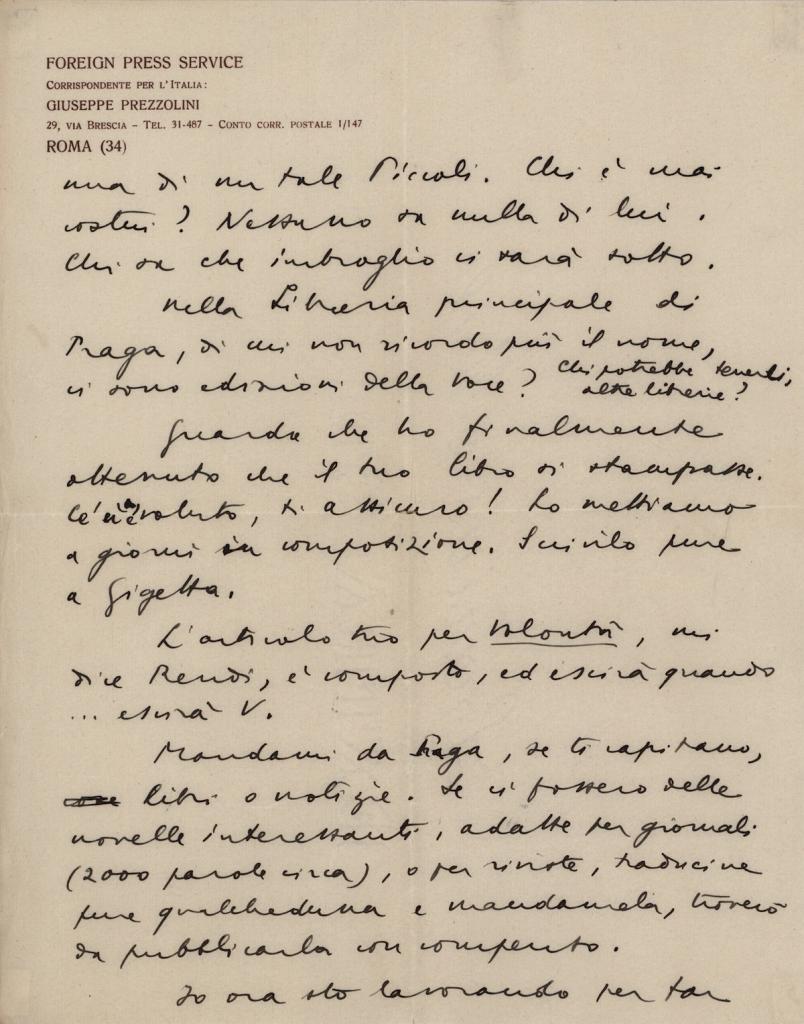 FOREIGN PRESS SERVICE
CORRISPONDENTE PER L'ITALIA:
GIUSEPPE PREZZOLINI
29, VIA BRESCIA - TEL. 31-487 - CONTO CORR. POSTALE 1/147
ROMA (34)
una di un tale Piccoli. Chi è mai
costui? Nessuno sa nulla di lui.
Chi sa che imbroglio ci sarà sotto.
Nella Libreria principale di
Praga, di cui non ricordo più il nome,
ci sono edizioni della Voce? Chi potrebbe tenerli,
altre librerie?
Guarda che ho finalmente
ottenuto che il tuo libro si stampasse.
Ce n'è voluto, ti assicuro! Lo mettiamo
a giorni in composizione. Scrivilo pure
a Gigetta.
L'articolo tuo per Volontà, mi
dice Rendi, è composto, ed escirà quando
... escirà V.
Mandami da Praga, se ti capitano,
libri o notizie. Se ci fossero delle
novelle interessanti, adatte per giornali
(2000 parole circa), o per riviste, traducine
pure qualcheduna e mandamela, troverò
da pubblicarla con compenso.
Io ora sto lavorando per far